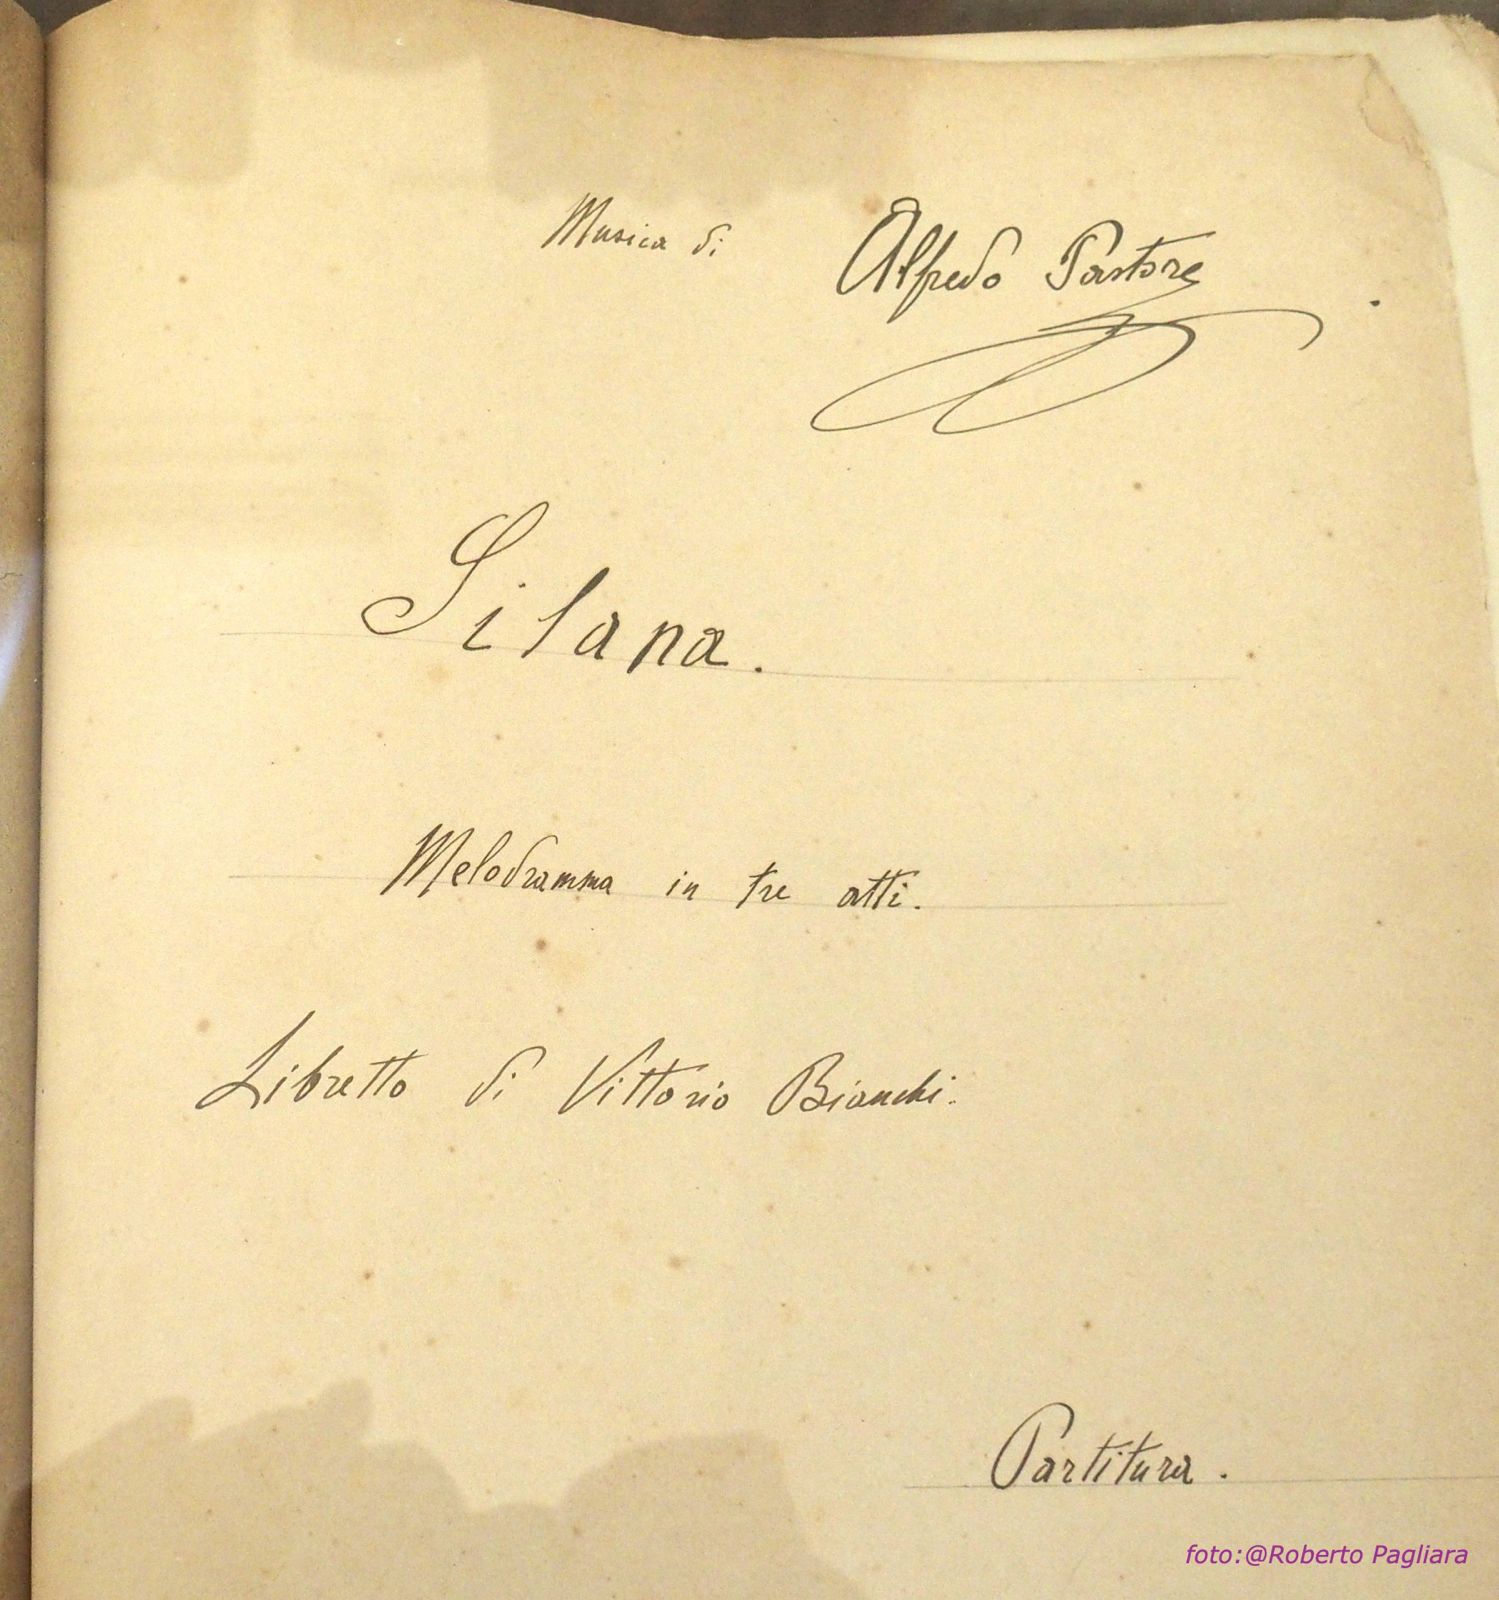 Musica di Alfredo Pastore
Silana.
Melodramma in tre atti.
Libretto di Vittorio Bianchi.
Partitura.
foto:@Roberto Pagliara